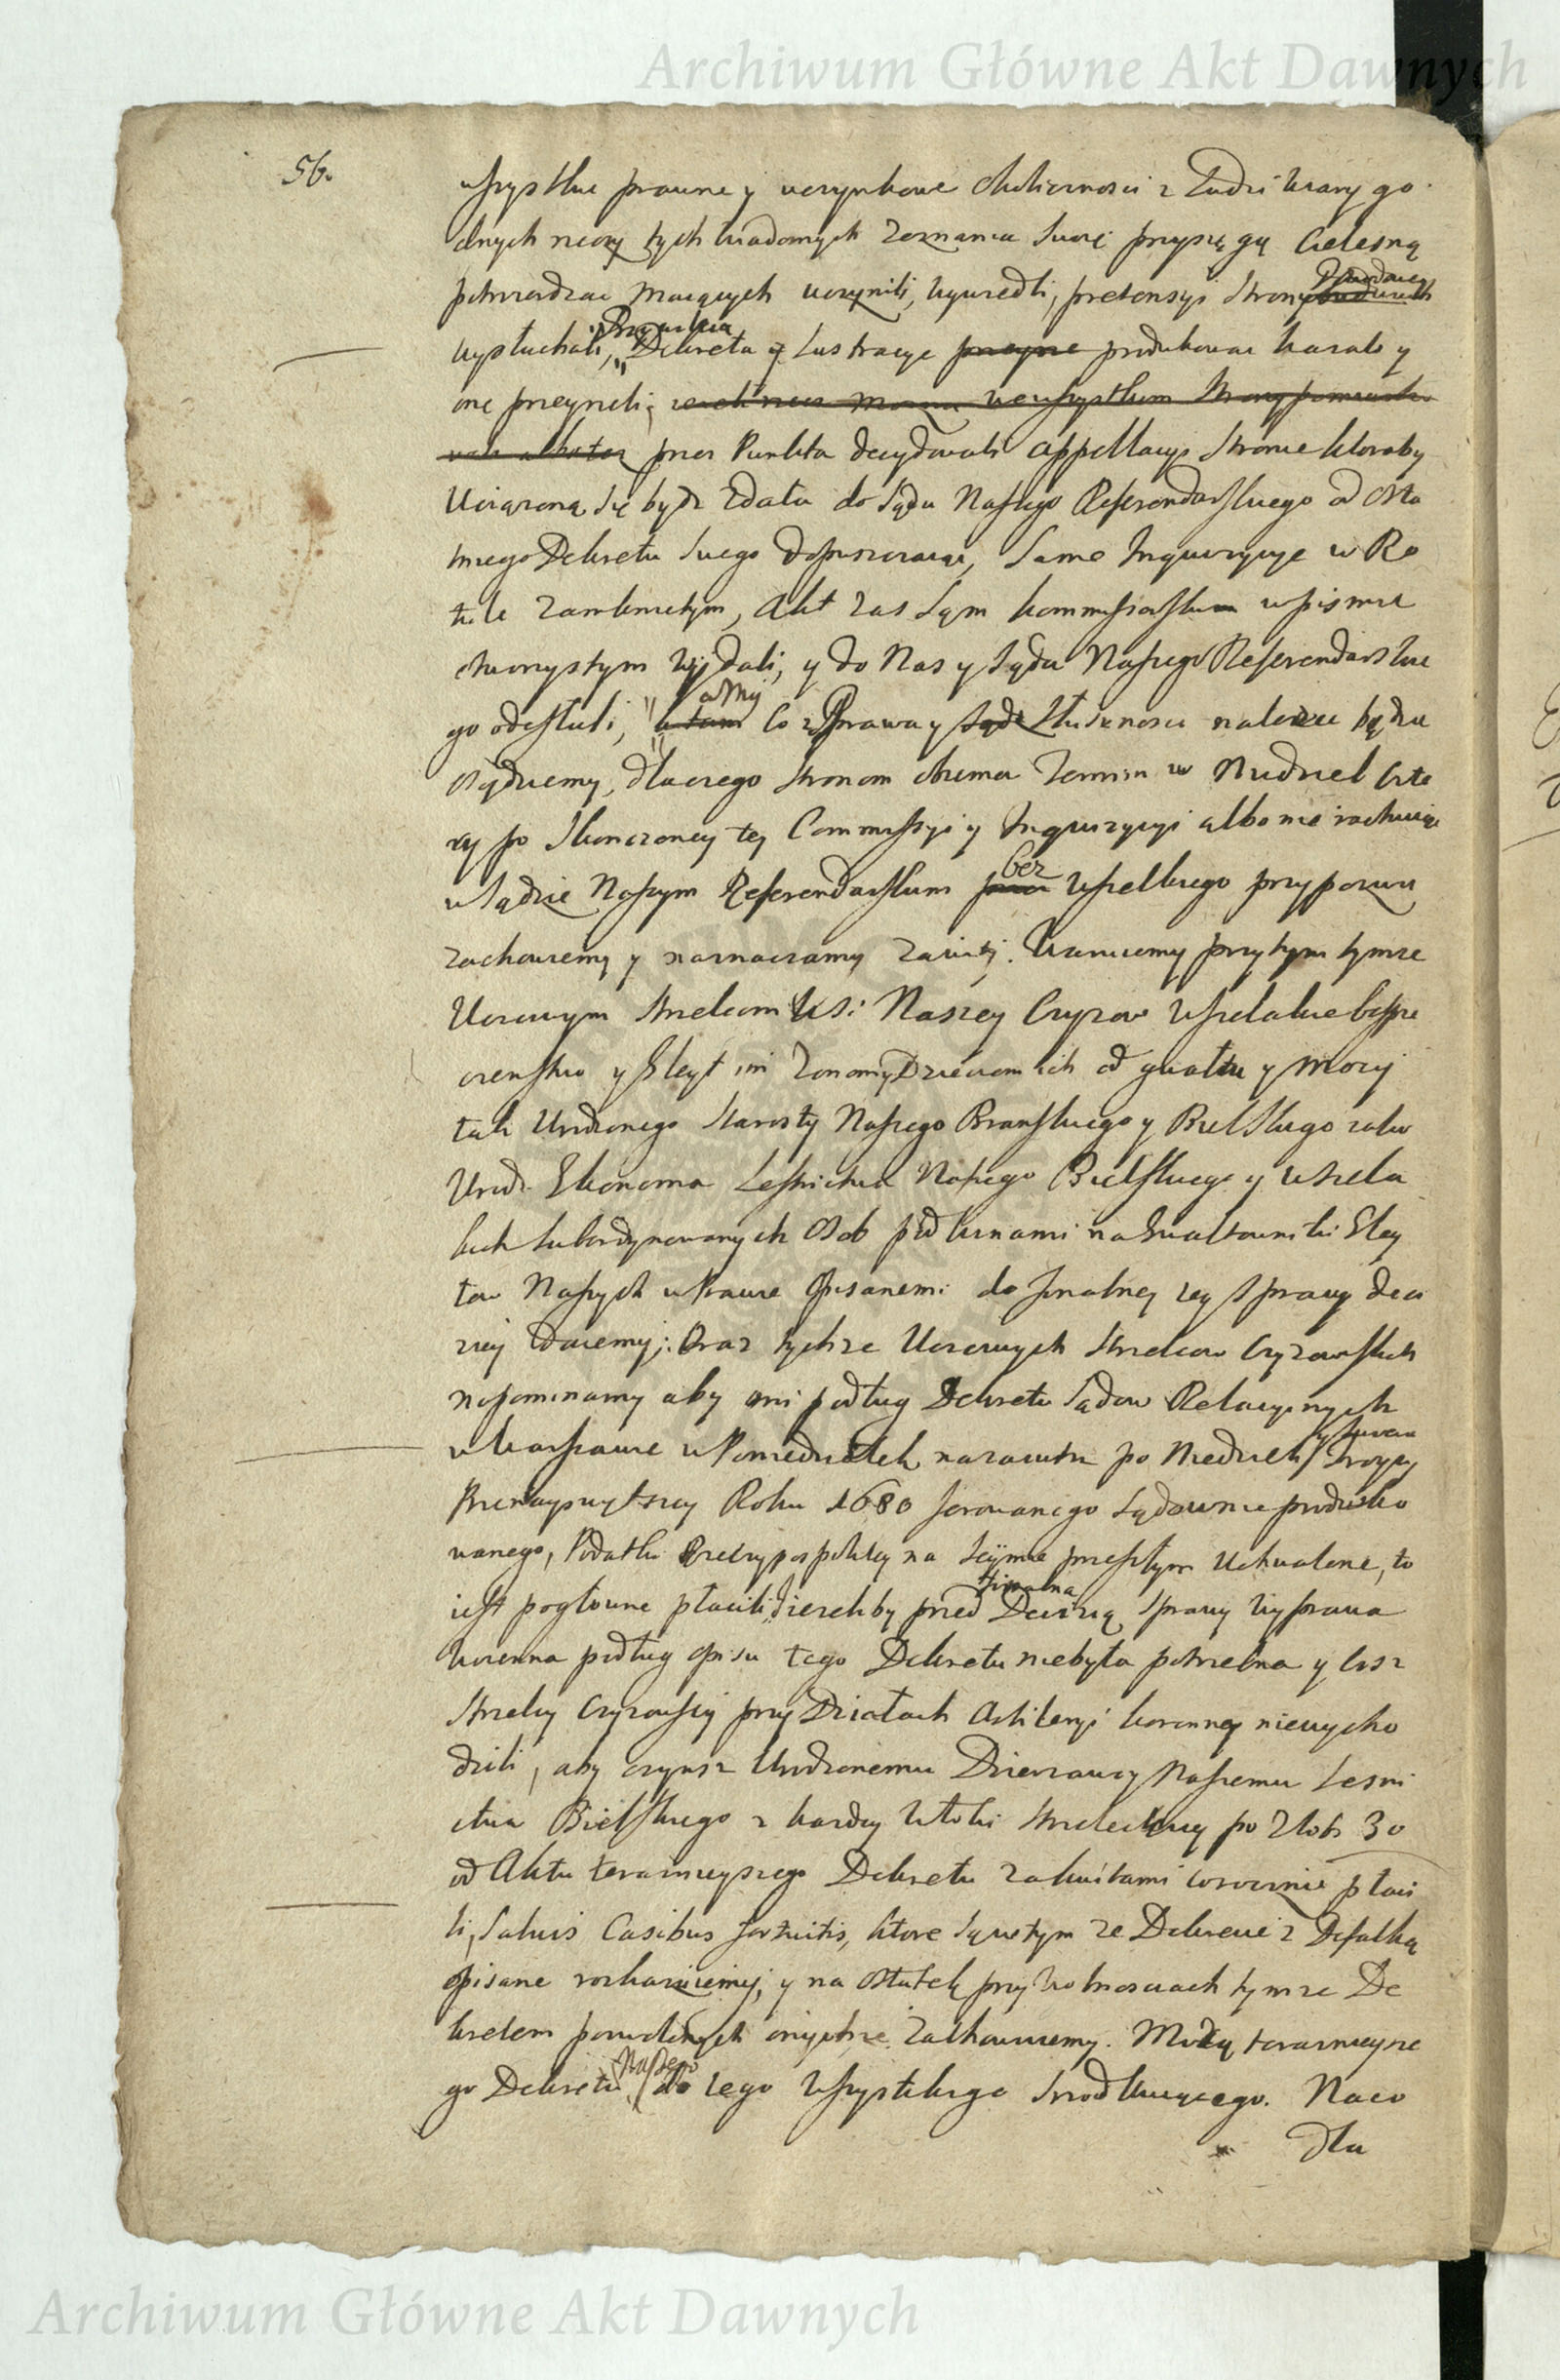 Archiwum Główne Akt Dawnych
56.
wszystkie prawne y uczynkowe okoliczności z Ludzi wiary go
dnych rzeczy tych wiadomych zeznania swoie przysięgą Cielesną
potwierdzać maiących uczynili, wywiedli, pretensyi Strony Powodowey
wysłuchali, Przywileia, Dekreta y Lustracye produkować kazali y
one przeyrzeli,
przez Punkta decydowali appellacyi Stronie któraby
Uciążoną się bydź zdała do Sądu Naszego Referendarskiego od Osta
tniego Dekretu swego dopuszczaiąc, Same Inquizycye w Ro
tule zamkniętym, Akt zas sam kommissarski w pismie
otworzystym wydali, y do Nas y Sądu Naszego Referendarskie
go odesłali, a My Co z Prawa y Słuszności należeć będzie
osądziemy, dlaczego Stronom obiema Termin w Niedziel czte
ry po Skonczoney tey Commissyi y Inquizycyi albo nie rachuiąc
w Sądzie Naszym Referendarskim bez wszelkiego przypozwu
zachowuiemy y naznaczamy zawity. Waruiemy przytym tymze
Uczciwym Strzelcom Wsi Naszey Czyzow wszelakie beśpie
czenstwo y Gleyt im Zonom y Dzieciom ich od gwałtu y mocy
tak Urodzonego Starosty Naszego Branskiego y Bielskiego iako
Urodz. Ekonoma Lesnictwa Naszego Bielskiego y wszela
kich subordynowanych Osob pod winami na Gwałtowniki Gley
tow Naszych w Prawie Opisanemi do finalney tey Sprawy decy
zyi daiemy; Oraz tychze Uczciwych Strzelcow Czyzowskich
napominamy aby oni podług Dekretu Sądow Relacyinych
w Warszawie w Poniedziałek nazaiutrz po Niedzieli Swięta Troycy
Przenayswiętszey Roku 1680 ferowanego Sądownie produko
wanego, Podatki Rzeczypospolitey na Seymie przeszłym Uchwalone, to
iest pogłowne płacili, jezeliby przed finalną Decizią Sprawy Wyprawa
woienna podług opisu tego Dekretu niebyła potrzebna y ciz
Strzelcy Czyzowscy przy Działach Artileryi koronney niewycho
dzili, aby czynsz Urodzonemu Dzierzawcy Naszemu Lesni
ctwa Bielskiego z kazdey Włoki Strzeleckiey po Złotch 30
od Aktu teraznieyszego Dekretu za kwitami corocznie płaci
li, Salvis Casibus fortuitis, które są w tym ze Dekrecie z Defalką
opisane rozkazuiemy, y na Ostatek przy wolnosciach tymze De
kretem pozwolonych onychze zachowuiemy. Mocą teraznieysze
go Dekretu Naszego do tego wszystkiego srodkuiącego. Na co
dla
Archiwum Główne Akt Dawnych